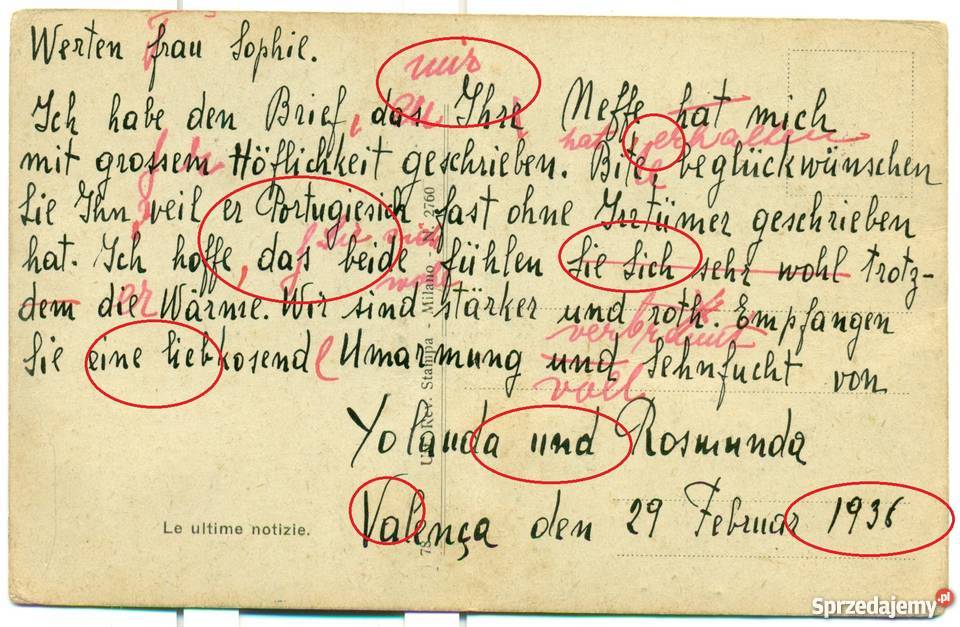 Werten frau Sophie.
mir
Ich habe den Brief, das Ihre Neffe hat mich
en hat erhalten
mit grossem Höflichkeit geschrieben. Bitte, beglückwünschen
Sie Ihn, veil er Portugiesich fast ohne Irrtümer geschrieben
Sie sich
hat. Ich hoffe, das beide fühlen Sie Sich sehr wohl trotz-
wohl
dem die Wärme. Wir sind stärker und roth. Empfangen
er verbrannt
Sie eine liebkosend Umarmung und Sehnfucht von
voll
Yolanda und Rosmunda
Valença den 29 Februar 1936
Le ultime notizie.
Rev. Stampa - Milano - N. 2760
Sprzedajemy.pl